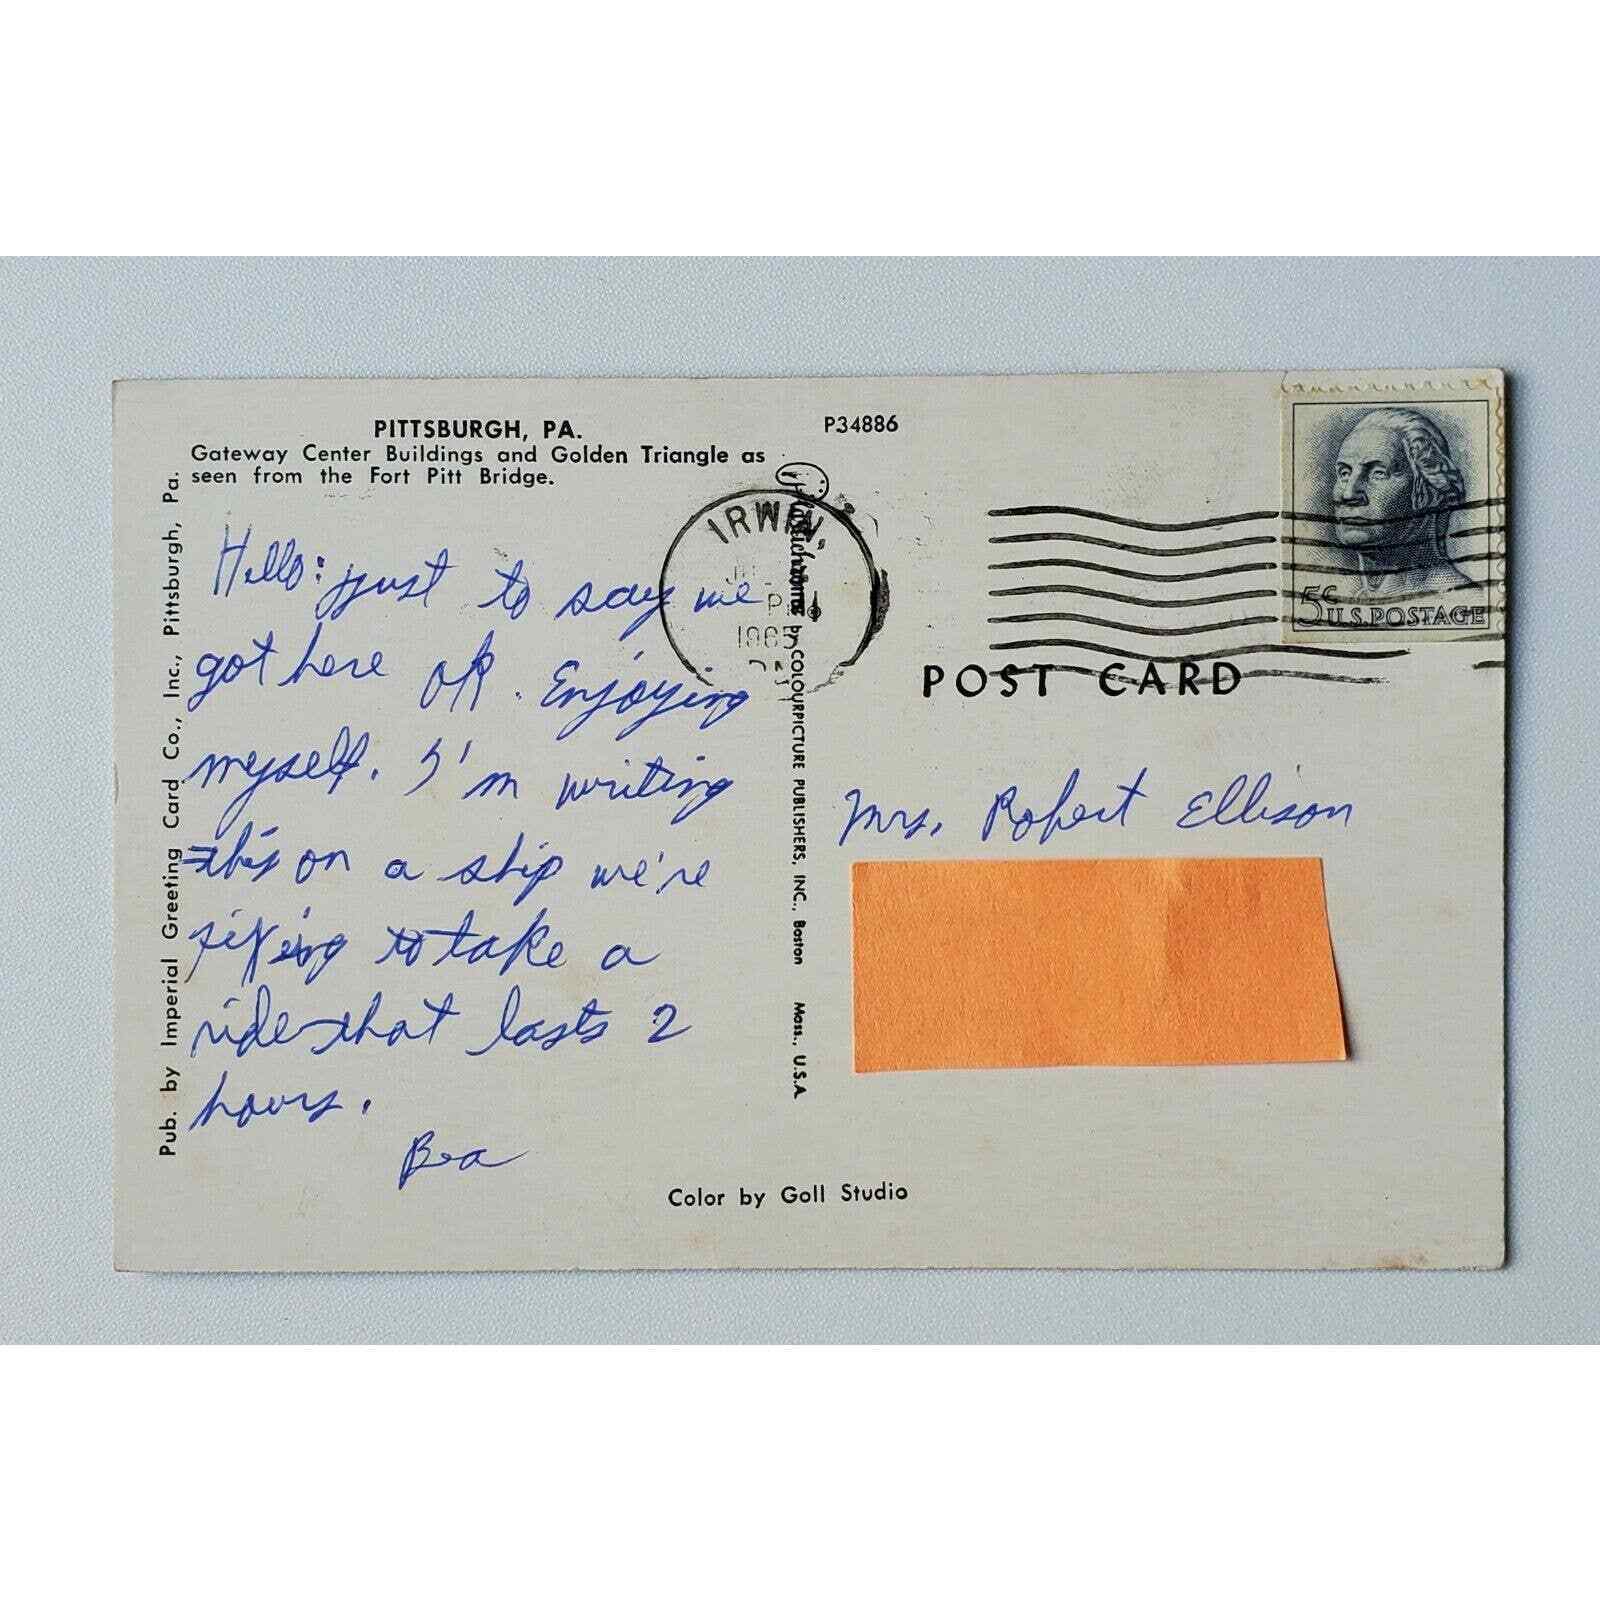 PITTSBURGH, PA.
Gateway Center Buildings and Golden Triangle as
seen from the Fort Pitt Bridge.
P34886
Pub. by Imperial Greeting Card Co., Inc., Pittsburgh, Pa.
Hello: just to say we
got here OK. Enjoying
myself. I'm writing
this on a ship we're
fixing to take a
ride that lasts 2
hours.
Bea
IRWIN,
1965
Plastichrome® by COLOURPICTURE PUBLISHERS, INC., Boston Mass., U.S.A.
5¢ U.S. POSTAGE
POST CARD
Mrs. Robert Ellison
Color by Goll Studio